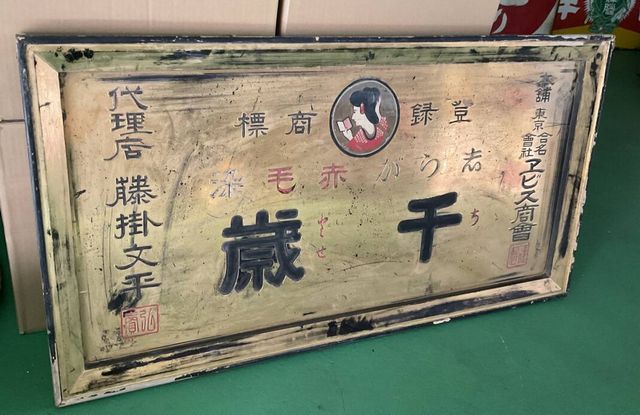 本舗 東京 合名會社 ヱビス商會
登録商標
志らが赤毛染
千歳
ちとせ
代理店 藤掛文平